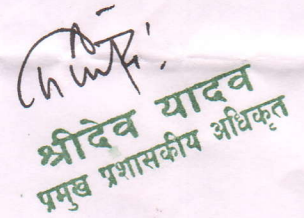 श्रीदेव यादव
प्रमुख प्रशासकीय अधिकृत